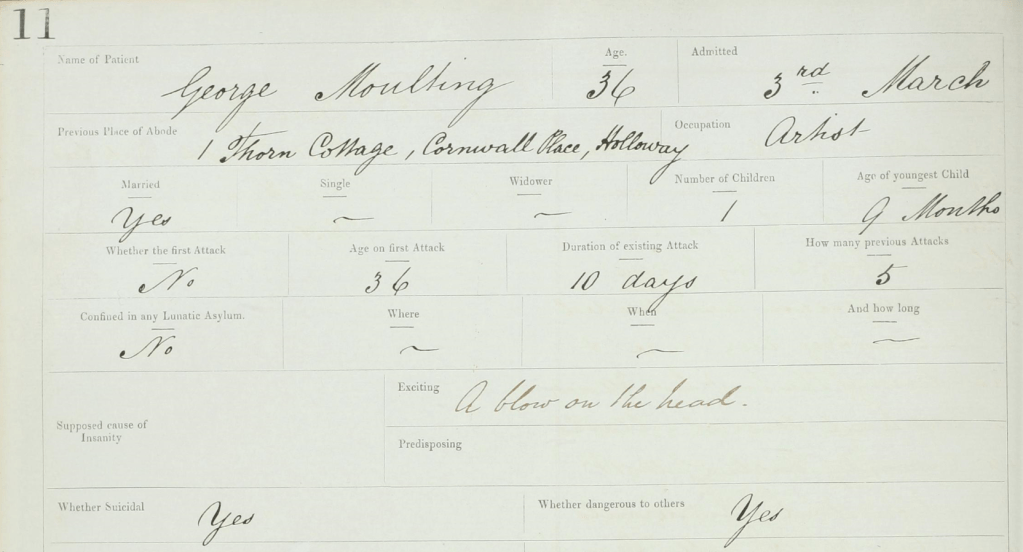 11
Name of Patient George Moulting Age. 36 Admitted 3rd. March
Previous Place of Abode 1 Thorn Cottage, Cornwall Place, Holloway Occupation Artist
Married Single Widower Number of Children Age of youngest Child
Yes ~ ~ 1 9 Months
Whether the first Attack Age on first Attack Duration of existing Attack How many previous Attacks
No 36 10 days 5
Confined in any Lunatic Asylum. Where When And how long
No ~ ~ ~
Supposed cause of Insanity
Exciting A blow on the head.
Predisposing
Whether Suicidal Yes Whether dangerous to others Yes